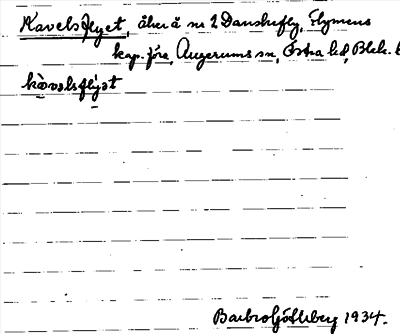 Kavelsflyet, åker å nr 2 Danskefly, Flymens
kap. förs, Augerums sn, Östra hd, Blek. l
kavalsflyat
Barbro Götlberg 1934.